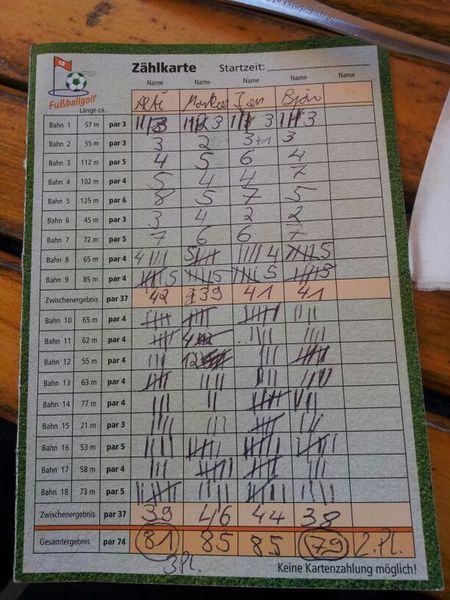 18
Fußballgolf
Zählkarte Startzeit:
Name Name Name Name Name
Länge ca.
Bahn 1 57 m par 3 3 3 3 3
Bahn 2 55 m par 3 3 2 3+1 3
Bahn 3 112 m par 5 4 5 6 4
Bahn 4 102 m par 4 5 4 4 7
Bahn 5 125 m par 6 8 5 7 5
Bahn 6 45 m par 3 3 4 2 2
Bahn 7 72 m par 5 7 6 6 7
Bahn 8 65 m par 4 4 5 4 5
Bahn 9 85 m par 4 5 5 5 5
Zwischenergebnis par 37 42 39 41 41
Bahn 10 65 m par 4
Bahn 11 62 m par 4
Bahn 12 55 m par 4 12
Bahn 13 63 m par 4
Bahn 14 77 m par 4
Bahn 15 21 m par 3
Bahn 16 53 m par 5
Bahn 17 58 m par 4
Bahn 18 73 m par 5
Zwischenergebnis par 37 39 46 44 38
Gesamtergebnis par 74 81 85 85 79 2.Pl.
3Pl.
Keine Kartenzahlung möglich!